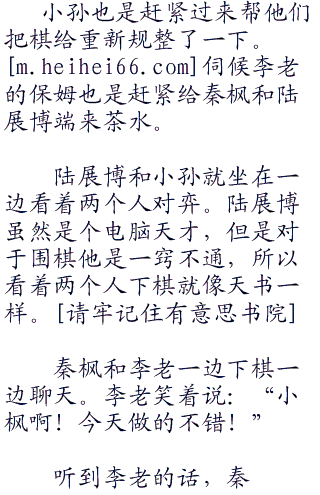 小孙也是赶紧过来帮他们
把棋给重新规整了一下。
[m.heihei66.com]伺候李老
的保姆也是赶紧给秦枫和陆
展博端来茶水。
陆展博和小孙就坐在一
边看着两个人对弈。陆展博
虽然是个电脑天才，但是对
于围棋他是一窍不通，所以
看着两个人下棋就像天书一
样。[请牢记住有意思书院]
秦枫和李老一边下棋一
边聊天。李老笑着说：“小
枫啊！今天做的不错！”
听到李老的话，秦